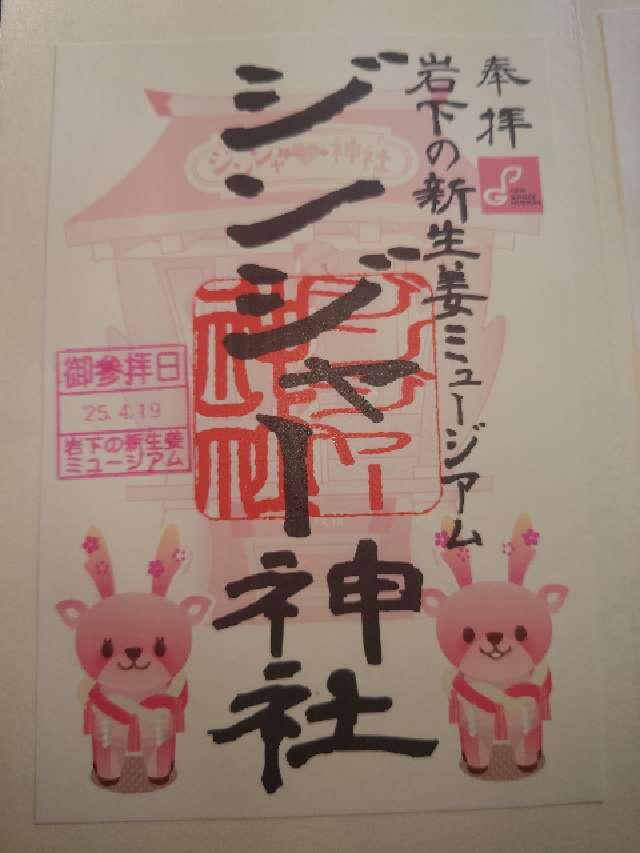 奉拝
岩下の新生姜ミュージアム
ジンジャー神社
ジンジャー神社
ジンジャー
神社
御参拝日
25.4.19
岩下の新生姜
ミュージアム